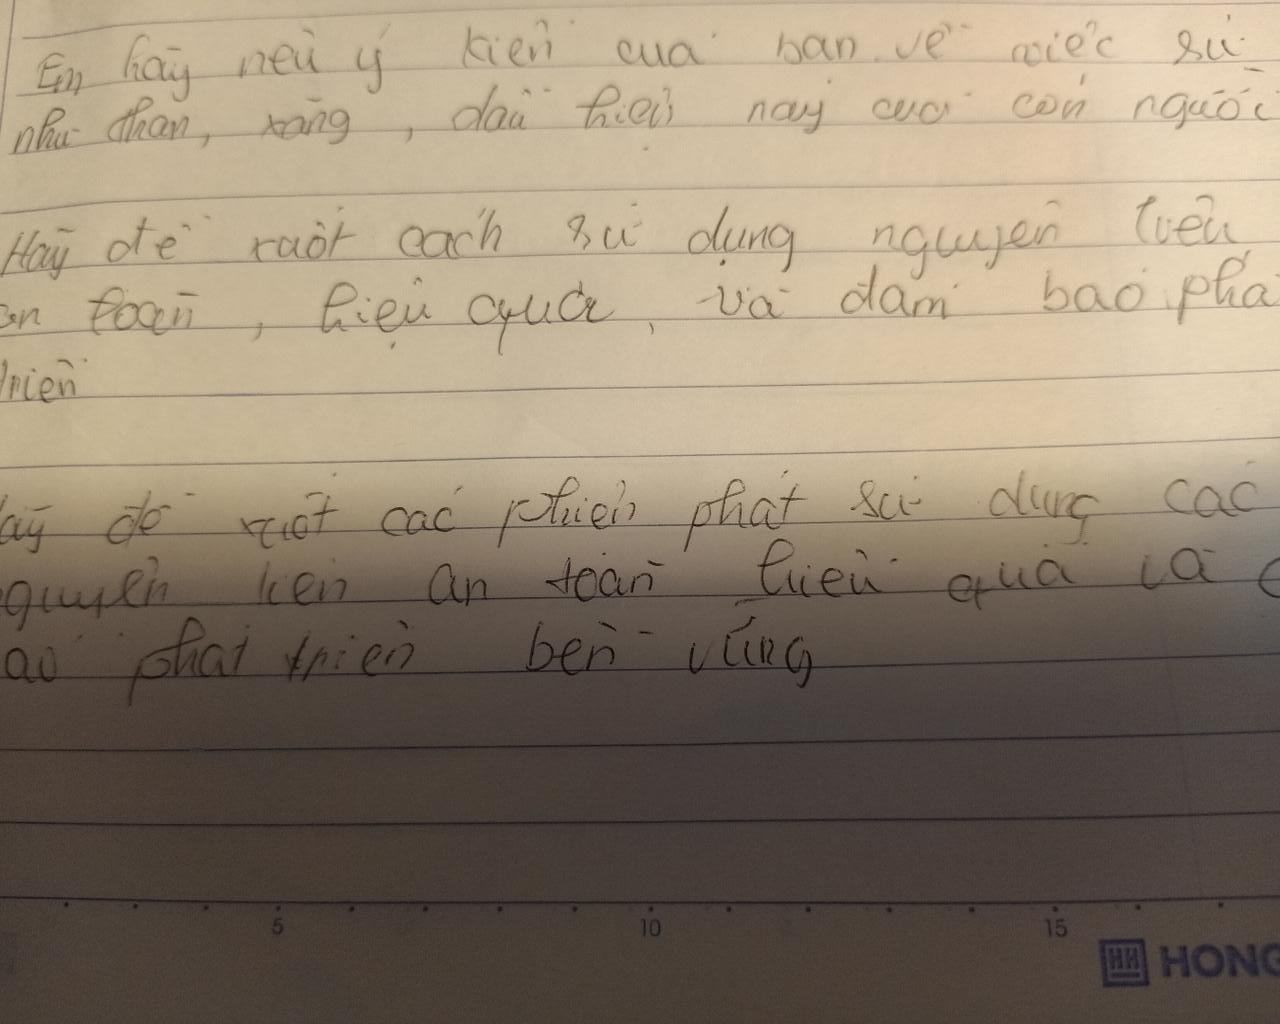 Em hãy nêu ý kiến của bạn về việc sử
như than, xăng, dầu hiện nay của con người
Hãy đề xuất cách sử dụng nguyên liệu
an toàn, hiệu quả, và đảm bảo phá
triển
ãy đề xuất các phát sử dụng các
an toàn hiệu quả và
ảo phát triển bền vững
5 10 15
HH HONG